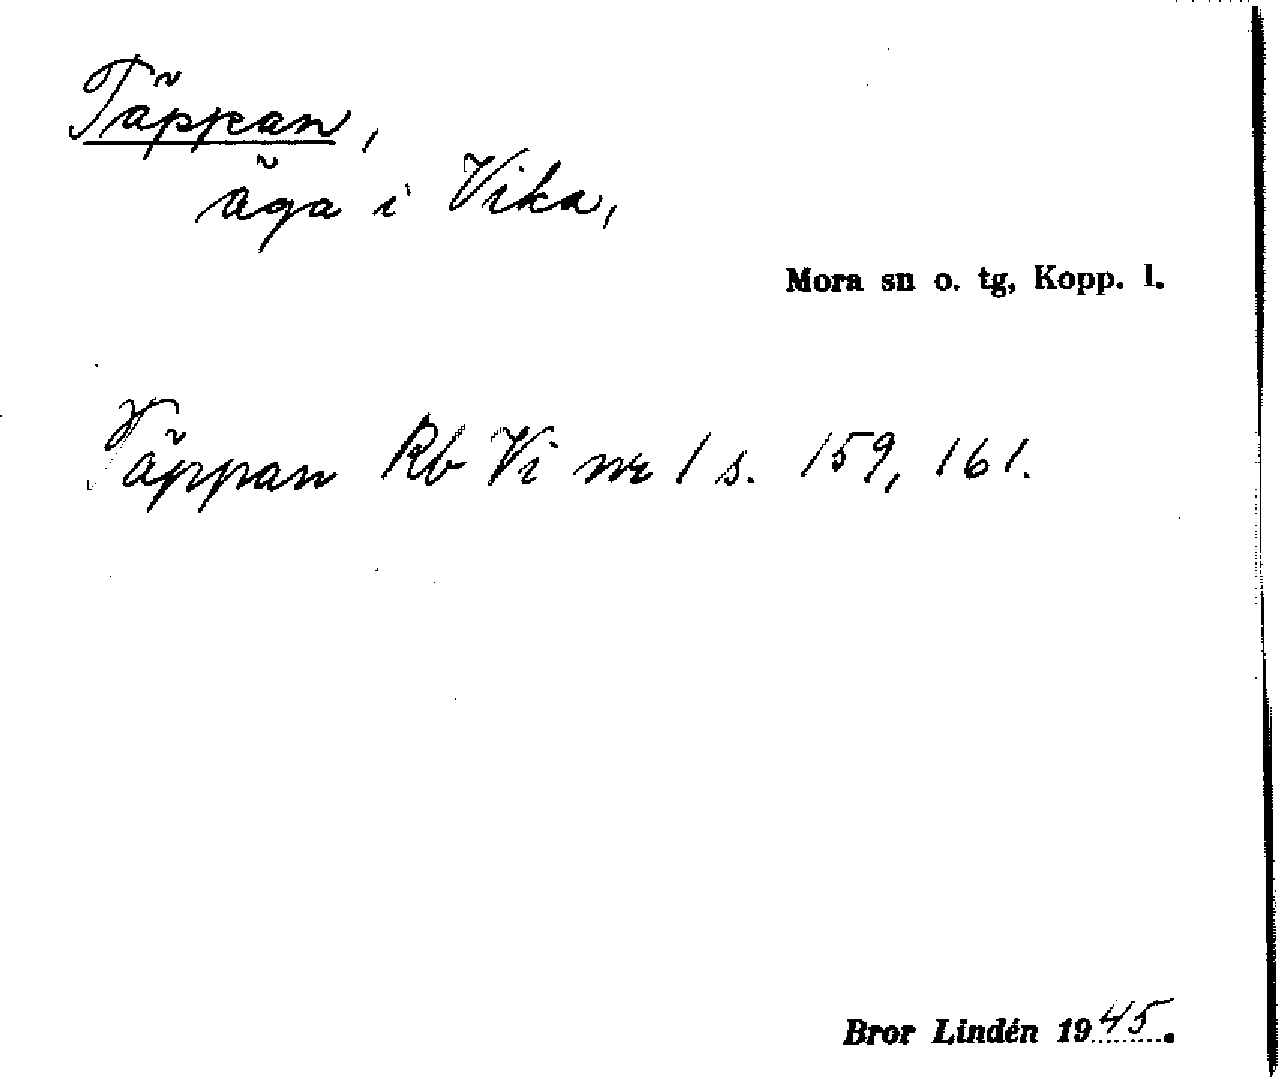 Täppan,
äga i Vika,
Mora sn o. tg, Kopp. l.
Täppan Rb Vi nr 1 s. 159, 161.
Bror Lindén 1945.